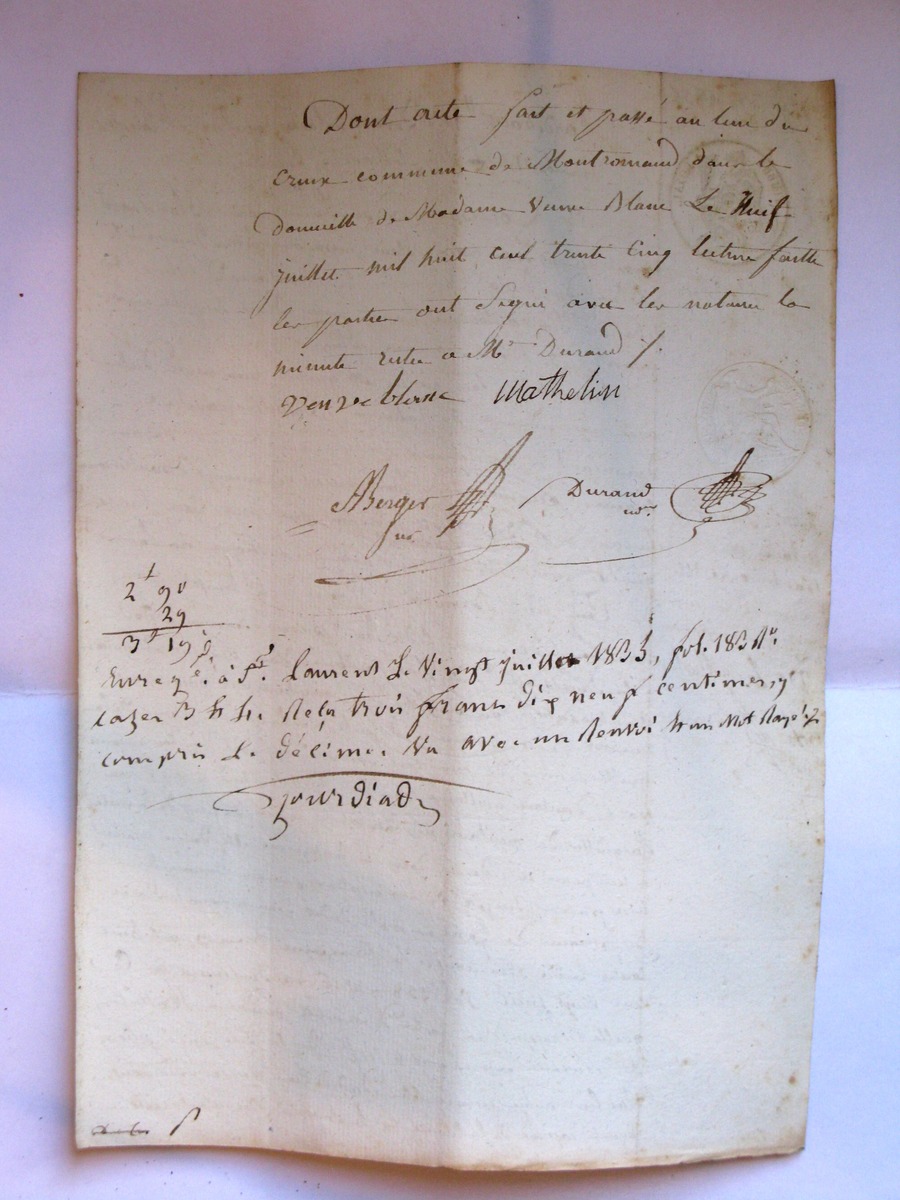 Dont acte fait et passé au lieu du
Creux commune de Montromand dans le
domicille de Madame Veuve Blanc Le Huit
juillet mil huit cent trente Cinq lecture faitte
les parties ont Signé avec les notaires la
minute restée a Me Durand /.
Veuve blanc Mathelin
Berger nre Durand ndre
2f 90
29
3f 19
Enregé. à St. Laurent Le Vingt juillet 1835, fol. 183 Ro.
cazes 3 & 4. Reçu trois francs dix neuf centimes, y
compris Le décime. Vu avec un Renvoi & un Mot Rayé
Jourdiad